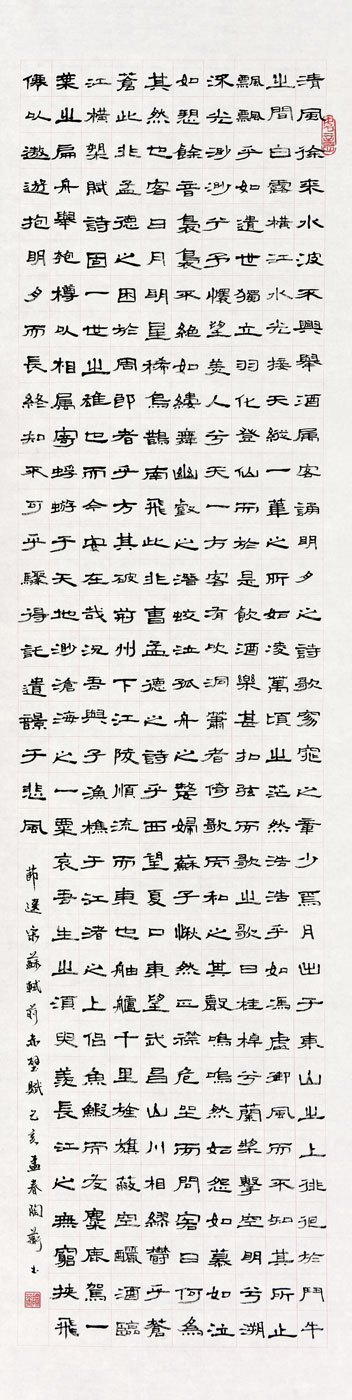 清風徐來水波不興舉酒屬客誦明月之詩歌窈窕之章少焉月出于東山之上徘徊於鬥牛
之間白露橫江水光接天縱一葦之所如凌萬頃之茫然浩浩乎如馮虛御風而不知其所止
飄飄乎如遺世獨立羽化登仙而於是飲酒樂甚扣弦而歌之歌曰桂棹兮蘭槳擊空明兮溯
流光渺渺兮予懷望美人兮天一方客有吹洞簫者倚歌而和之其聲嗚嗚然如怨如慕如泣
如愬餘音裊裊不絕如縷舞幽壑之潛蛟泣孤舟之嫠婦蘇子愀然正襟危坐而問客曰何為
其然也客曰月明星稀烏鵲南飛此非曹孟德之詩乎西望夏口東望武昌山川相繆鬱乎蒼
蒼此非孟德之困於周郎者乎方其破荊州下江陵順流而東也舳艫千里旌旗蔽空釃酒臨
江橫槊賦詩固一世之雄也而今安在哉況吾與子漁樵于江渚之上侶魚鰕而友麋鹿駕一
葉之扁舟舉匏樽以相屬寄蜉蝣于天地渺滄海之一粟哀吾生之須臾羨長江之無窮挾飛
僊以遨遊抱明月而長終知不可乎驟得託遺響于悲風
節選宋蘇軾前赤壁賦己亥孟春陶書